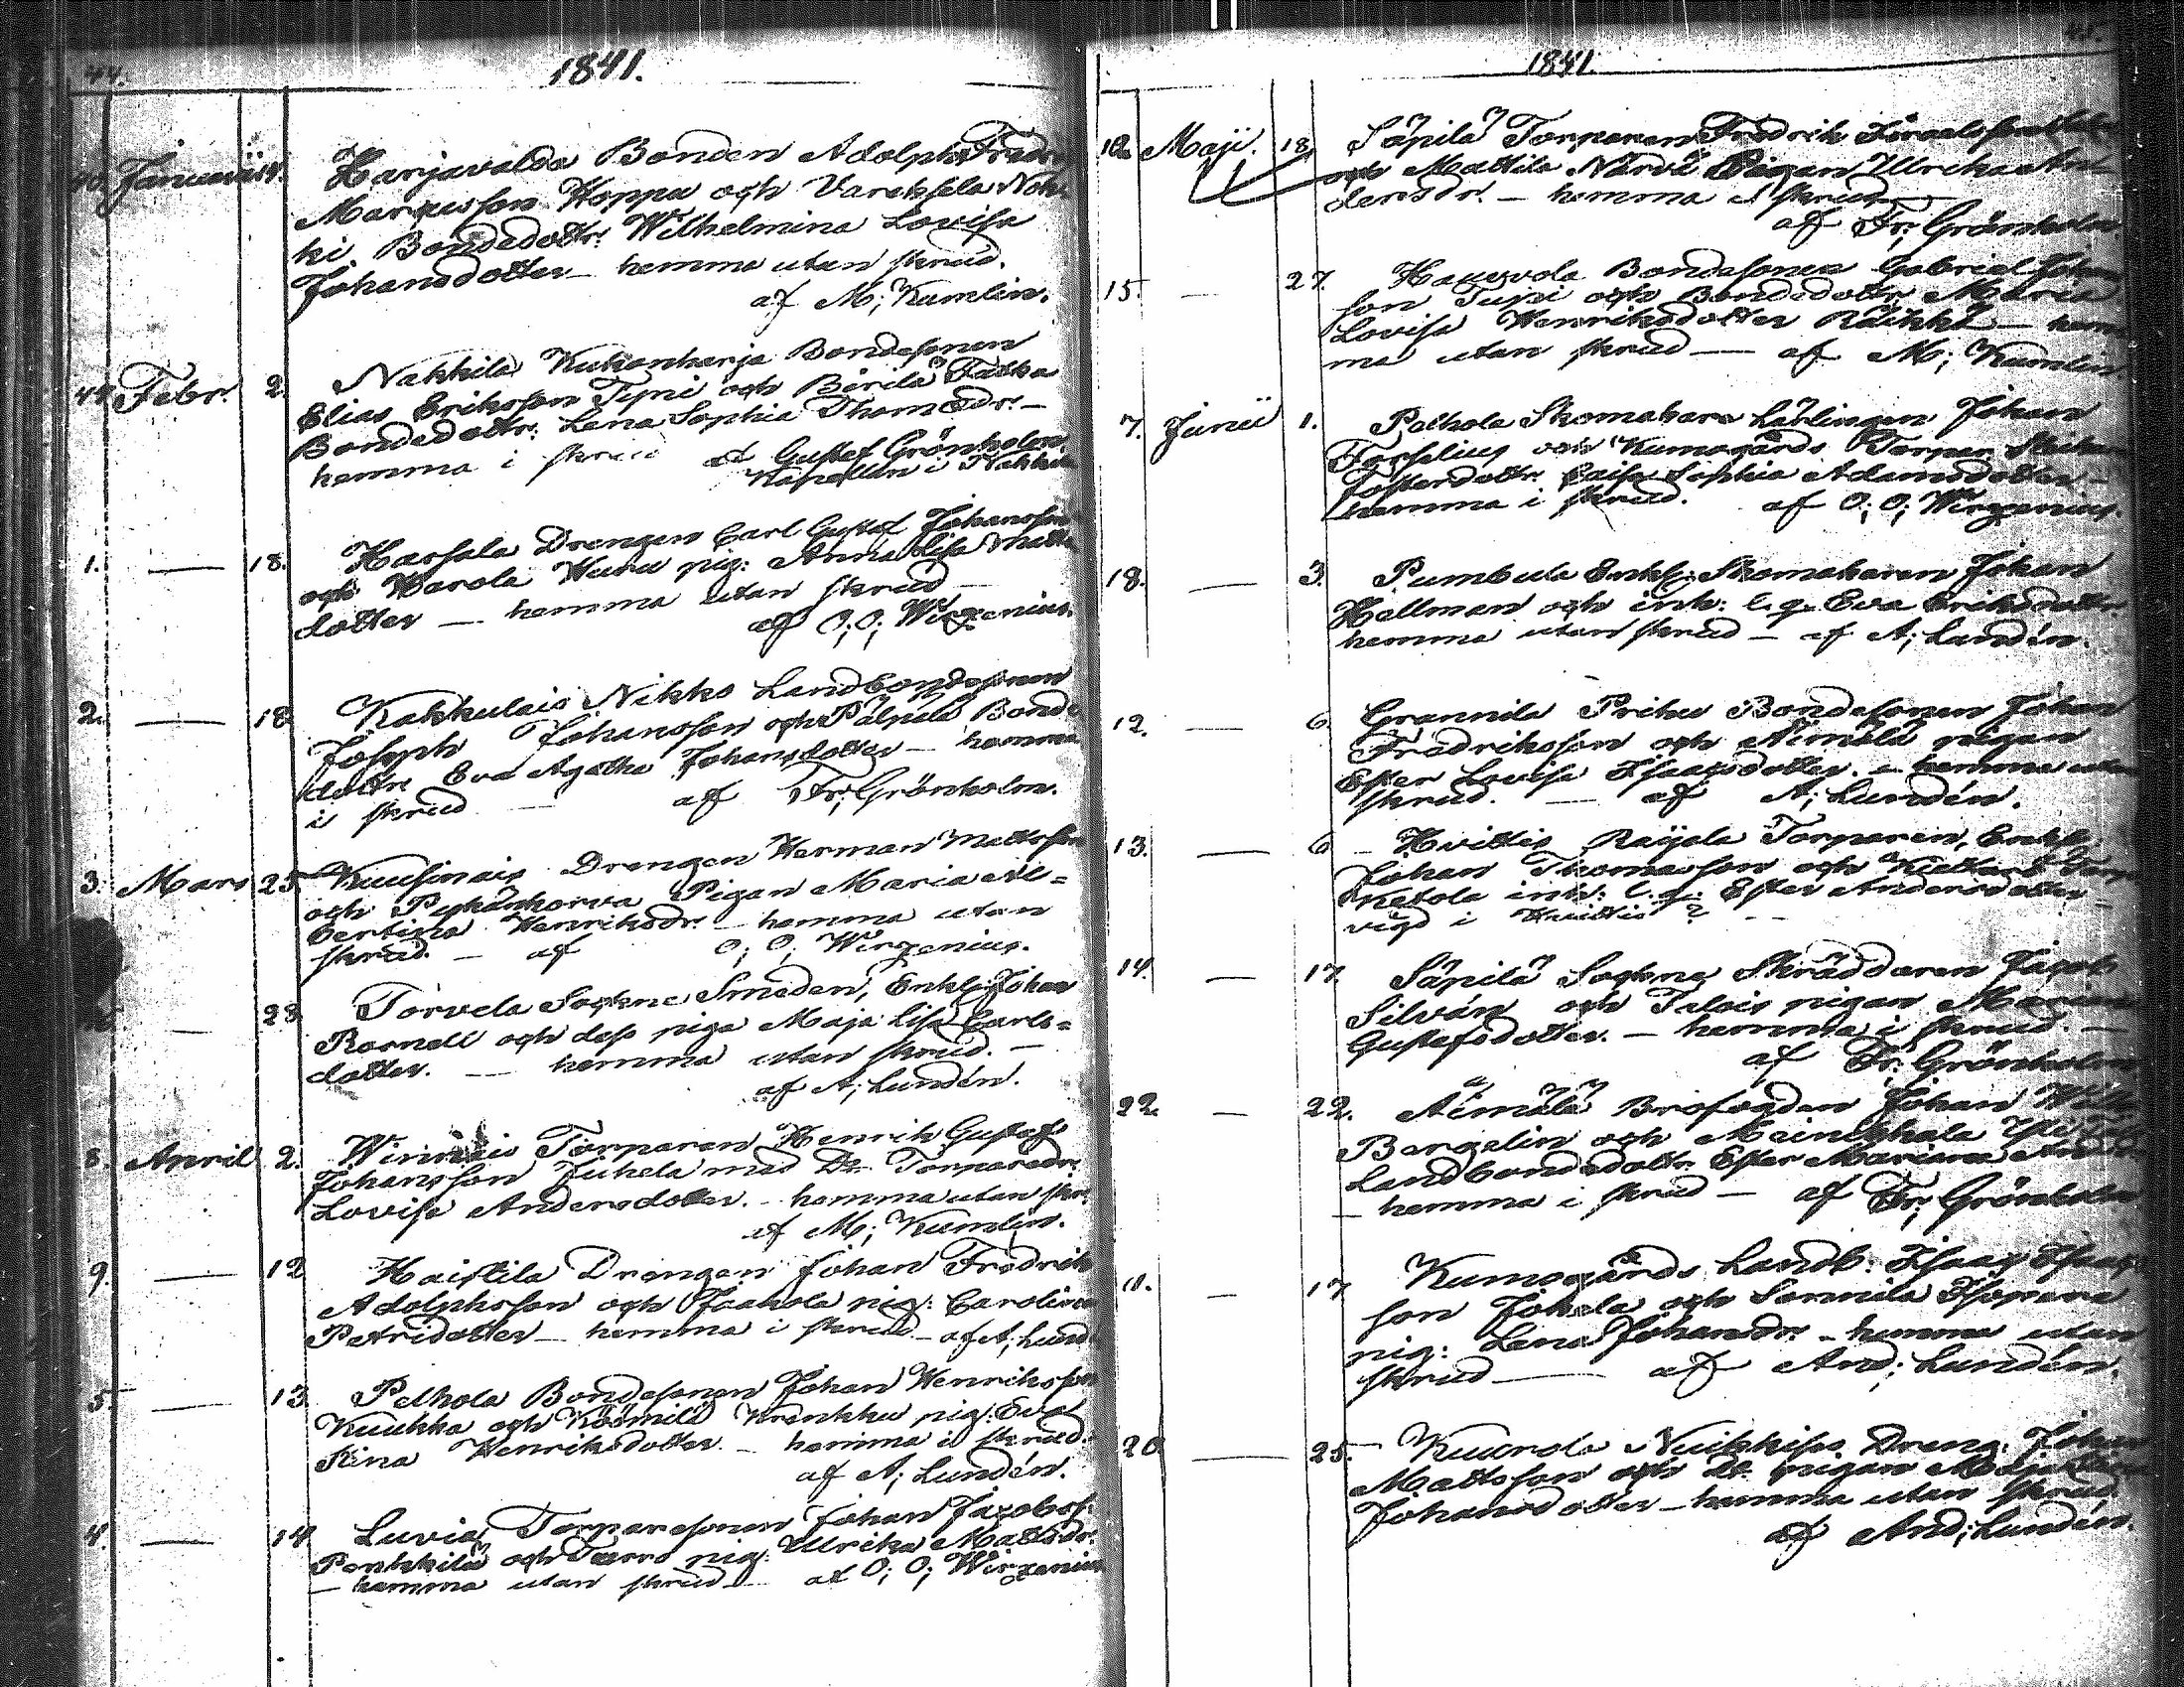 44.
1841.
40. Januarii 14. Harjavalda Bonden Adolph Fredr
Marcusson Hoppu och Vareksela Noh
ki Bondedottr. Wilhelmina Lovisa
Johansdotter — hemma utan skrud.
af M; Kumlin.
Febr. 2. Nakkila Kukonharja Bondesonen
Elias Eriksson Typi och Bärilä Tatka
Bondedottr. Lena Sophia Thomædr. —
hemma i skrud af Gustaf Grönholm
Kapellan i Nakkila
1. — 18. Harsala Drengen Carl Gustaf Johansson
och Warola Wuru pig: Anna Lisa Matts
dotter — hemma utan skrud —
af O; O; Wirzenius.
2. — 18 Kakkulais Nikko Landbondesonen
Joseph Johansson och Pälpälä Bonde
dottr Eva Agatha Johansdotter — hemma
i skrud — af Fr; Grönholm.
3. Mars 25 Kuusinais Drengen Herman Mattsson
och Pyhänkorva Pigan Maria Al=
bertina Henriksdr. — hemma utan
skrud. — af O; O; Wirzenius.
— 28 Torvela Sockne Smeden, Enkl: Johan
Rosnell och dess piga Maja Lisa Carls=
dotter. — hemma utan skrud. —
af A; Lundén.
8. April 2. Torparen Henrik Gustaf
Johansson Juhela med Do Torparedr.
Lovisa Andersdotter. — hemma utan skr.
af M; Kumlin.
9. — 12 Haistila Drengen Johan Fredrik
Adolphsson och Jaakola pig: Carolina
Petridotter — hemma i skrud — af A; Lund
5. — 13. Peihola Bondesonen Johan Henriksson
Kuukka och Köömilä Krenkku pig: Eva
Stina Henriksdotter. — hemma i skrud.
af A; Lundén.
4. — 14 Luvia Torparesonen Johan Jacobss.
Penkkilä och Tuurs pig: Ulrika Mattsdr.
— hemma utan skrud — af O; O; Wirzenius
45.
1841.
10. Maji. 18. Säpilä Torparen Fredrik
och Mattila Närvä Pigan Ulrika An-
dersdr. — hemma i skrud —
af Fr; Grönholm.
15. — 27. Hauvola Bondesonen Gabriel Johans
son Tupi och Bondedottr. Maria
Lovisa Henriksdotter Räikkä — hem
ma utan skrud — af M; Kumlin.
7. Junii 1. Peihola Skomakare Lärlingen Johan
Forselius och Kumogårds Torpar
Fosterdottr. Caisa Sophia Adamsdotter —
hemma i skrud. af O; O; Wirzenius.
18. — 3. Pumbula Enkl: Skomakaren Johan
Hellman och inh: l.q. Eva Eriksdotter
hemma utan skrud — af A; Lundén.
12. — 6 Grannila Prihu Bondesonen Johan
Fredriksson och Äimälä pigan
Ester Lovisa Isaacsdotter. — hemma utan
skrud. — af A; Lundén.
13. — 6 Hvittis Raijala Torparen, Enkl:
Johan Thomasson och
Ketola inh: l.q. Ester Andersdotter —
vigd i Hvittis?
14. — 17. Säpilä Sockne Skräddaren Jacob
Silvén och Talois pigan Maria
Gustafsdotter. — hemma i skrud. —
af Fr; Grönholm
22. — 22. Äimälä Brofogden Johan
Bergelin och
Landbondedottr. Ester Mariana
— hemma i skrud — af Fr; Grönholm
11. — 17 Kumogårds Landb: Isaac Isaacs
son Johela och Sonnila
pig: Lena Johansdr. — hemma utan
skrud — af And; Lundén.
20 — 25. Kuurola Nuikkiss Dreng. Johan
Mattsson och Do pigan
Johansdotter — hemma utan skrud.
af And; Lundén.